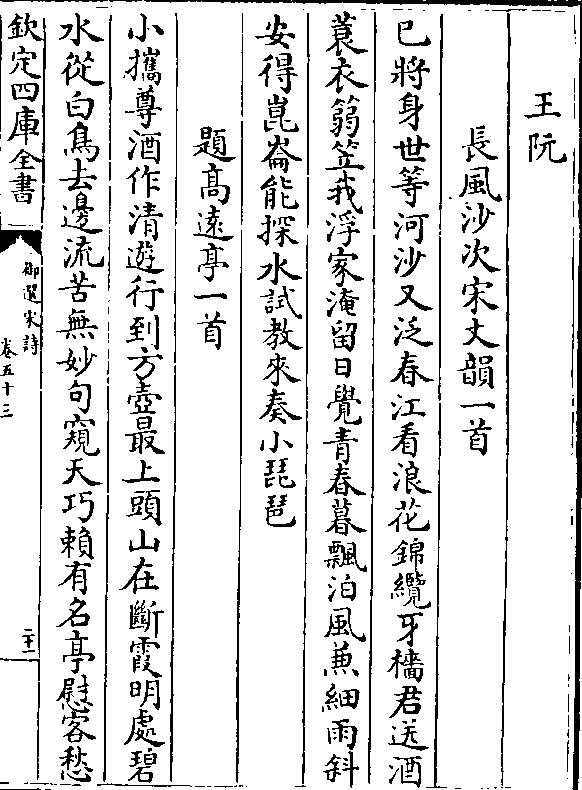 王阮
長風沙次宋丈韻一首
已將身世等河沙又泛春江看浪花錦纜牙檣君送酒
蓑衣篛笠我浮家淹留日覺青春暮飄泊風兼細雨斜
安得崑崙能探水試教來奏小琵琶
題高遠亭一首
小攜尊酒作清遊行到方壺最上頭山在斷霞明處碧
水從白鳥去邊流苦無妙句窺天巧賴有名亭慰客愁
欽定四庫全書
御選宋詩
卷五十三
二十